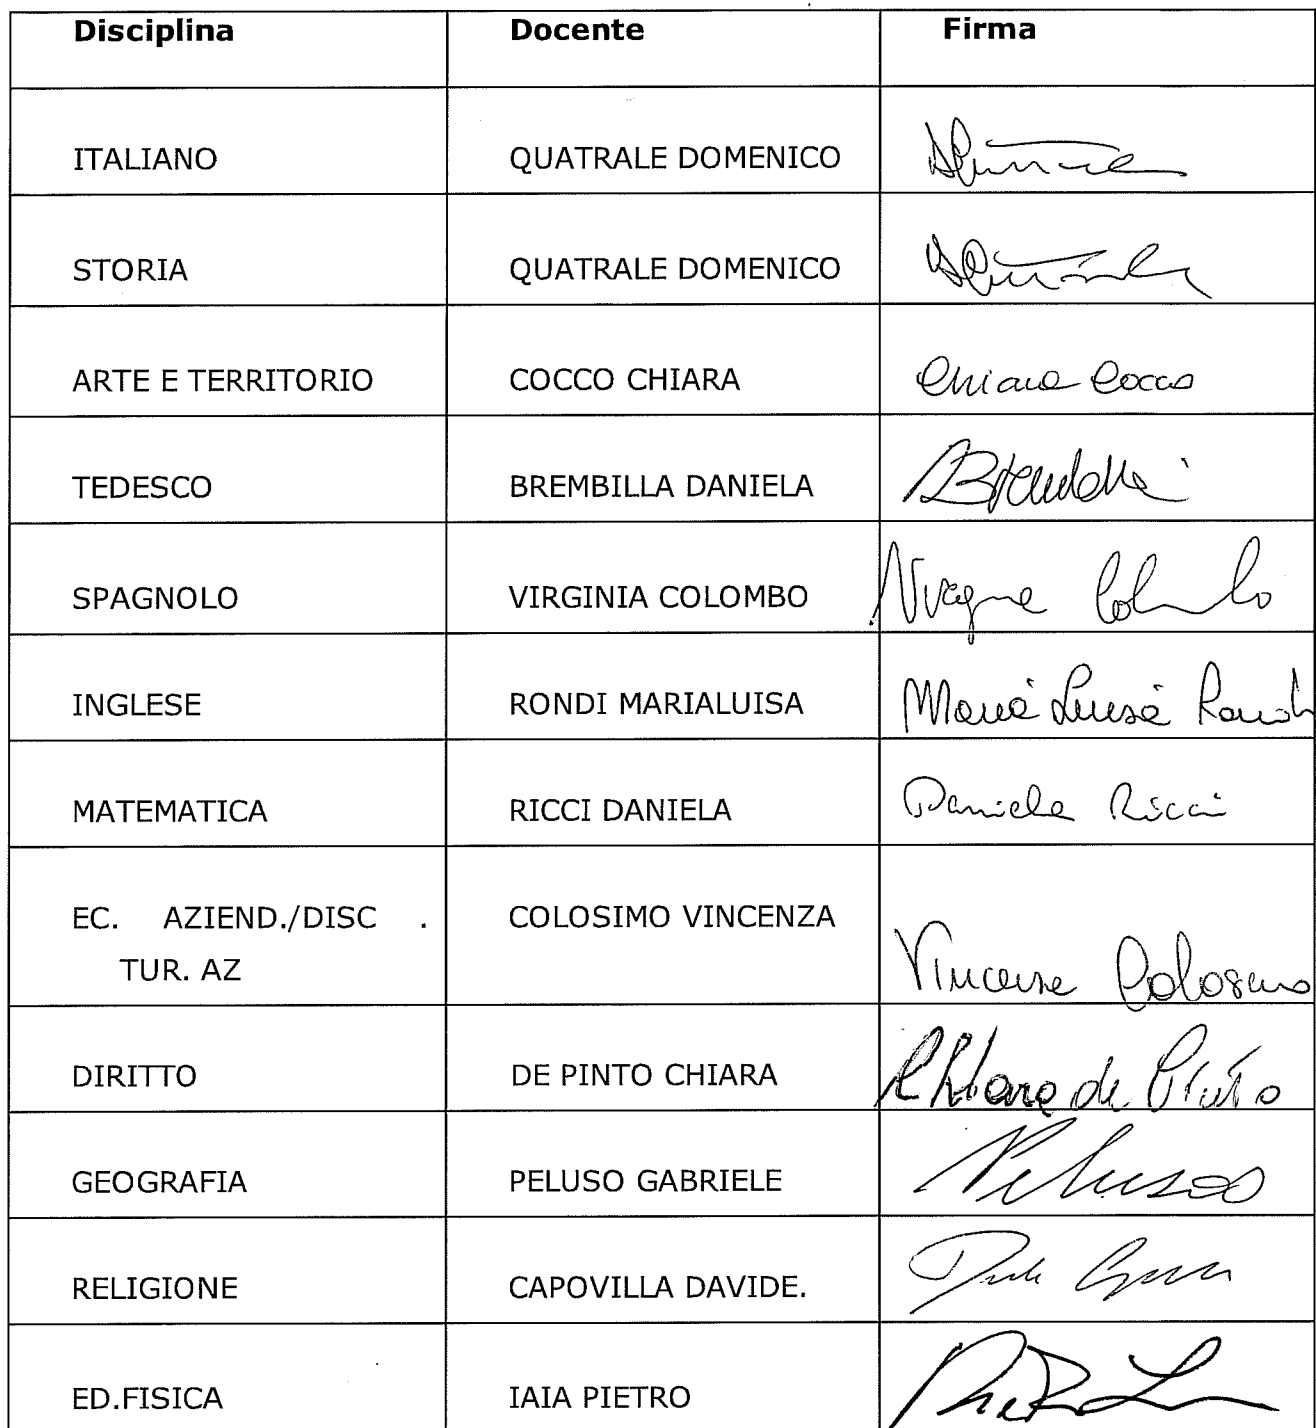 Disciplina Docente Firma
ITALIANO QUATRALE DOMENICO
STORIA QUATRALE DOMENICO
ARTE E TERRITORIO COCCO CHIARA Chiara Cocco
TEDESCO BREMBILLA DANIELA
SPAGNOLO VIRGINIA COLOMBO
INGLESE RONDI MARIALUISA Maria Luisa Rondi
MATEMATICA RICCI DANIELA Daniela Ricci
EC. AZIEND./DISC . COLOSIMO VINCENZA Vincenza Colosimo
TUR. AZ
DIRITTO DE PINTO CHIARA Chiara de Pinto
GEOGRAFIA PELUSO GABRIELE
RELIGIONE CAPOVILLA DAVIDE.
ED.FISICA IAIA PIETRO